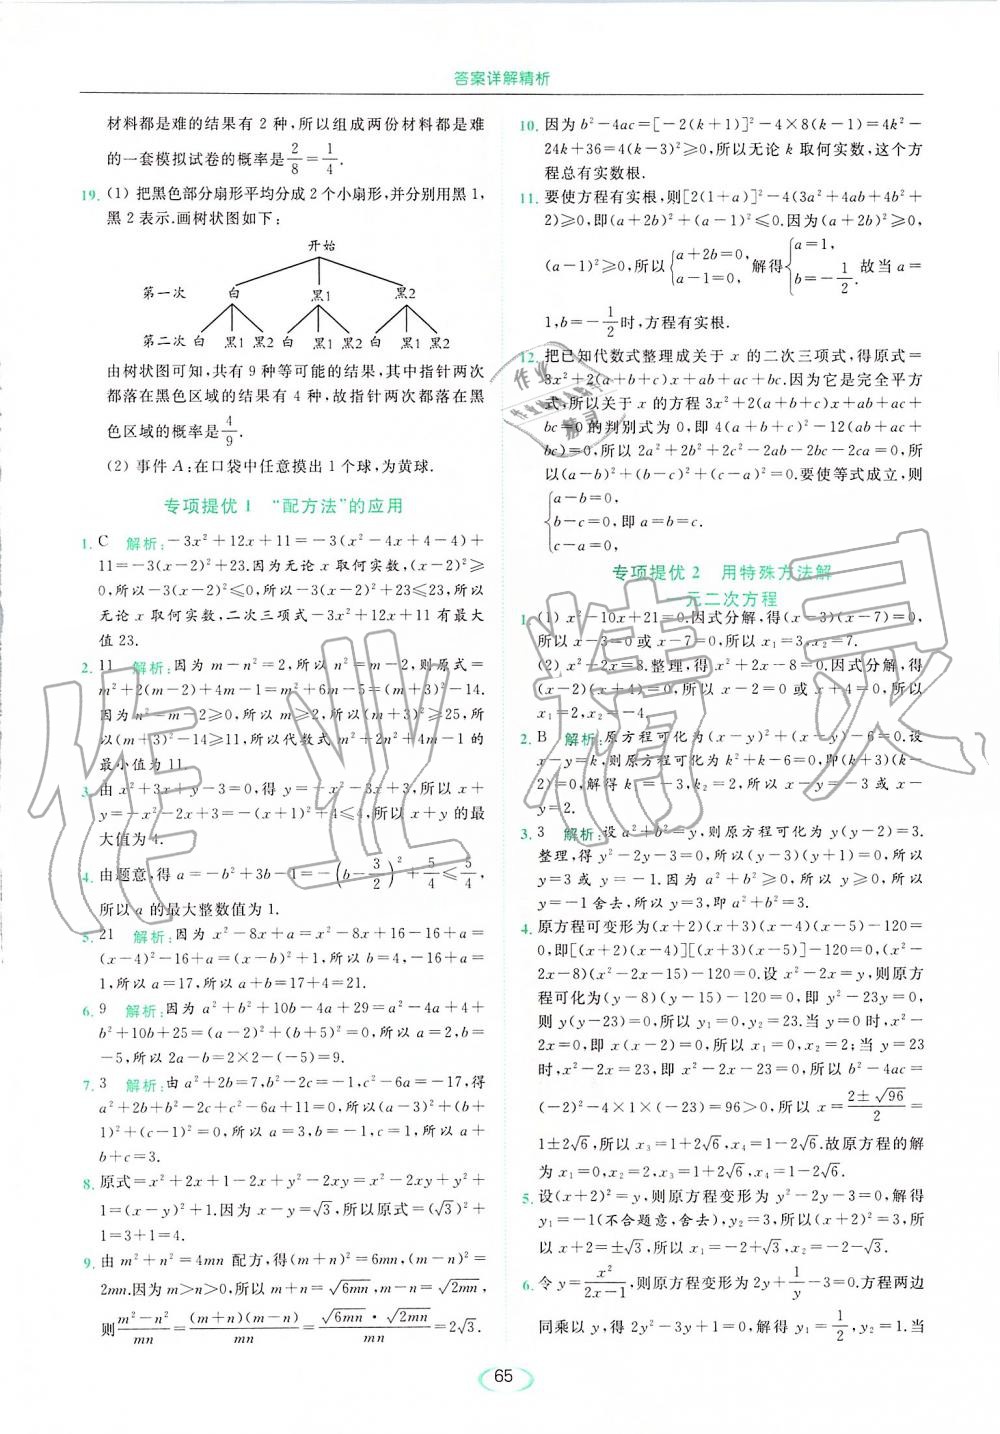 答案详解精析
材料都是难的结果有 2 种,所以组成两份材料都是难
的一套模拟试卷的概率是2/8=1/4.
19. (1) 把黑色部分扇形平均分成 2 个小扇形,并分别用黑 1,
黑 2 表示.画树状图如下:
开始
第一次 白 黑1 黑2
第二次 白 黑1 黑2 白 黑1 黑2 白 黑1 黑2
由树状图可知,共有 9 种等可能的结果,其中指针两次
都落在黑色区域的结果有 4 种,故指针两次都落在黑
色区域的概率是4/9.
(2) 事件 A:在口袋中任意摸出 1 个球,为黄球.
专项提优 1 “配方法”的应用
1. C 解析:-3x²+12x+11=-3(x²-4x+4-4)+
11=-3(x-2)²+23.因为无论 x 取何实数,(x-2)²≥
0,所以-3(x-2)²≤0,所以-3(x-2)²+23≤23,所以
无论 x 取何实数,二次三项式-3x²+12x+11有最大
值 23.
2. 11 解析:因为 m-n²=2,所以 n²=m-2,则原式=
m²+2(m-2)+4m-1=m²+6m-5=(m+3)²-14.
因为 n²=m-2≥0,所以 m≥2,所以(m+3)²≥25,所
以(m+3)²-14≥11,所以代数式 m²+2n²+4m-1 的
最小值为 11.
3. 由 x²+3x+y-3=0,得 y=-x²-3x+3,所以 x+
y=-x²-2x+3=-(x+1)²+4≤4,所以 x+y 的最
大值为 4.
4. 由题意,得 a=-b²+3b-1=-(b-3/2)²+5/4≤5/4,
所以 a 的最大整数值为 1.
5. 21 解析:因为 x²-8x+a=x²-8x+16-16+a=
(x-4)²-16+a=(x-b)²+1,所以 b=4,-16+a=
1,所以 a=17,所以 a+b=17+4=21.
6. 9 解析:因为 a²+b²+10b-4a+29=a²-4a+4+
b²+10b+25=(a-2)²+(b+5)²=0,所以 a=2,b=
-5,所以 2a-b=2×2-(-5)=9.
7. 3 解析:由 a²+2b=7,b²-2c=-1,c²-6a=-17,得
a²+2b+b²-2c+c²-6a+11=0,所以(a-3)²+(b+
1)²+(c-1)²=0,所以 a=3,b=-1,c=1,所以 a+
b+c=3.
8. 原式=x²+2x+1-2x+y²-2xy=x²-2xy+y²+
1=(x-y)²+1.因为 x-y=√3,所以原式=(√3)²+
1=3+1=4.
9. 由 m²+n²=4mn 配方,得(m+n)²=6mn,(m-n)²=
2mn.因为 m>n>0,所以 m+n=√6mn,m-n=√2mn,
则(m²-n²)/mn=(m+n)(m-n)/mn=√6mn·√2mn/mn=2√3.
10. 因为 b²-4ac=[-2(k+1)]²-4×8(k-1)=4k²-
24k+36=4(k-3)²≥0,所以无论 k 取何实数,这个方
程总有实数根.
11. 要使方程有实根,则[2(1+a)]²-4(3a²+4ab+4b²+
2)≥0,即(a+2b)²+(a-1)²≤0.因为(a+2b)²≥0,
(a-1)²≥0,所以{a+2b=0, a-1=0, 解得{a=1, b=-1/2. 故当 a=
1,b=-1/2时,方程有实根.
12. 把已知代数式整理成关于 x 的二次三项式,得原式=
3x²+2(a+b+c)x+ab+ac+bc.因为它是完全平方
式,所以关于 x 的方程 3x²+2(a+b+c)x+ab+ac+
bc=0 的判别式为 0,即 4(a+b+c)²-12(ab+ac+
bc)=0,所以 2a²+2b²+2c²-2ab-2bc-2ca=0,所
以(a-b)²+(b-c)²+(c-a)²=0.要使等式成立,则
{a-b=0,
b-c=0,即 a=b=c.
c-a=0,
专项提优 2 用特殊方法解
一元二次方程
1. (1) x²-10x+21=0.因式分解,得(x-3)(x-7)=0,
所以 x-3=0 或 x-7=0,所以 x₁=3,x₂=7.
(2) x²-2x=8.整理,得 x²+2x-8=0.因式分解,得
(x-2)(x+4)=0,所以 x-2=0 或 x+4=0,所以
x₁=2,x₂=-4.
2. B 解析:原方程可化为(x-y)²+(x-y)-6=0.设
x-y=k,则原方程可化为 k²+k-6=0,即(k+3)(k-
2)=0,解得 k₁=-3,k₂=2,所以 x-y=-3 或 x-
y=2.
3. 3 解析:设 a²+b²=y,则原方程可化为 y(y-2)=3.
整理,得 y²-2y-3=0,所以(y-3)(y+1)=0,所以
y=3 或 y=-1.因为 a²+b²≥0,所以 y≥0,所以
y=-1 舍去,所以 y=3,即 a²+b²=3.
4. 原方程可变形为(x+2)(x+3)(x-4)(x-5)-120=
0,即[(x+2)(x-4)][(x+3)(x-5)]-120=0,(x²-
2x-8)(x²-2x-15)-120=0.设 x²-2x=y,则原方
程可化为(y-8)(y-15)-120=0,即 y²-23y=0,
则 y(y-23)=0,所以 y₁=0,y₂=23.当 y=0 时,x²-
2x=0,即 x(x-2)=0,所以 x₁=0,x₂=2;当 y=23
时,x²-2x=23,即 x²-2x-23=0,所以 b²-4ac=
(-2)²-4×1×(-23)=96>0,所以 x=(2±√96)/2=
1±2√6,所以 x₃=1+2√6,x₄=1-2√6.故原方程的解
为 x₁=0,x₂=2,x₃=1+2√6,x₄=1-2√6.
5. 设(x+2)²=y,则原方程变形为 y²-2y-3=0,解得
y₁=-1(不合题意,舍去),y₂=3,所以(x+2)²=3,所
以 x+2=±√3,所以 x₁=-2+√3,x₂=-2-√3.
6. 令 y=x²/(2x-1),则原方程变形为 2y+1/y-3=0.方程两边
同乘以 y,得 2y²-3y+1=0,解得 y₁=1/2,y₂=1.当
65
作业精灵